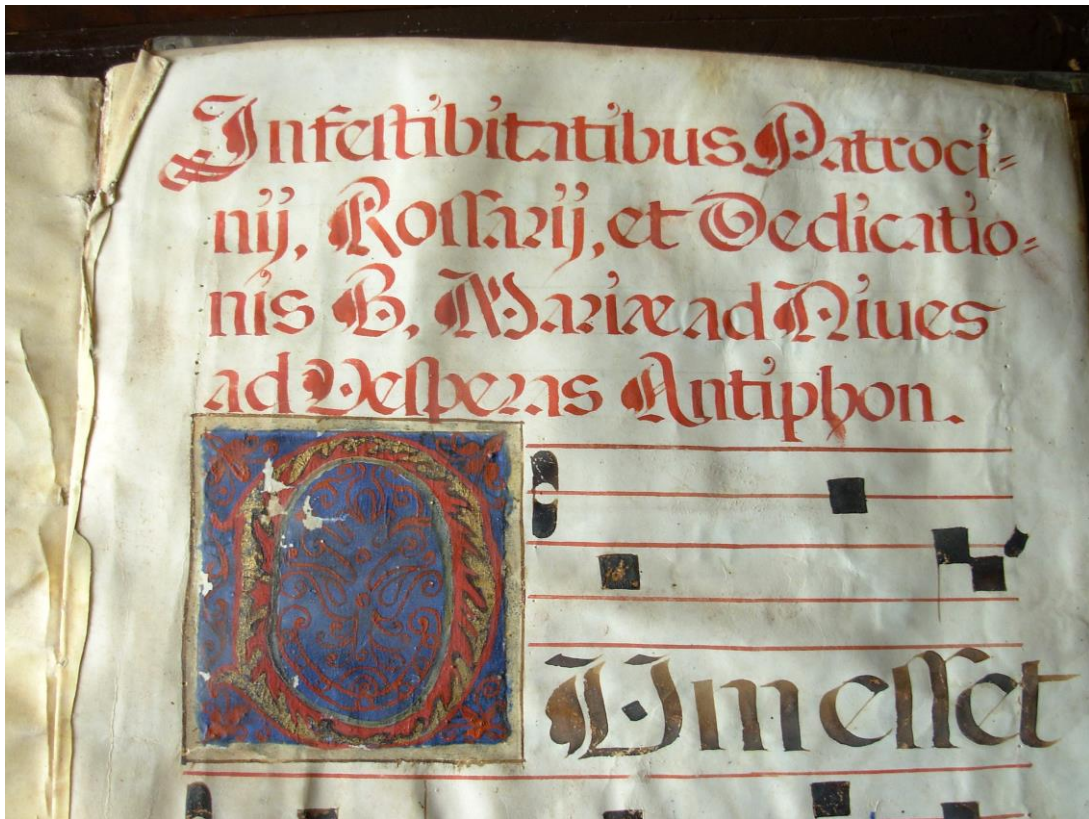 In festibitatibus Patroci=
nij, Rossarij, et Dedicatio=
nis B. Mariæ ad Niues
ad Vesperas Antiphon.
DUm esset